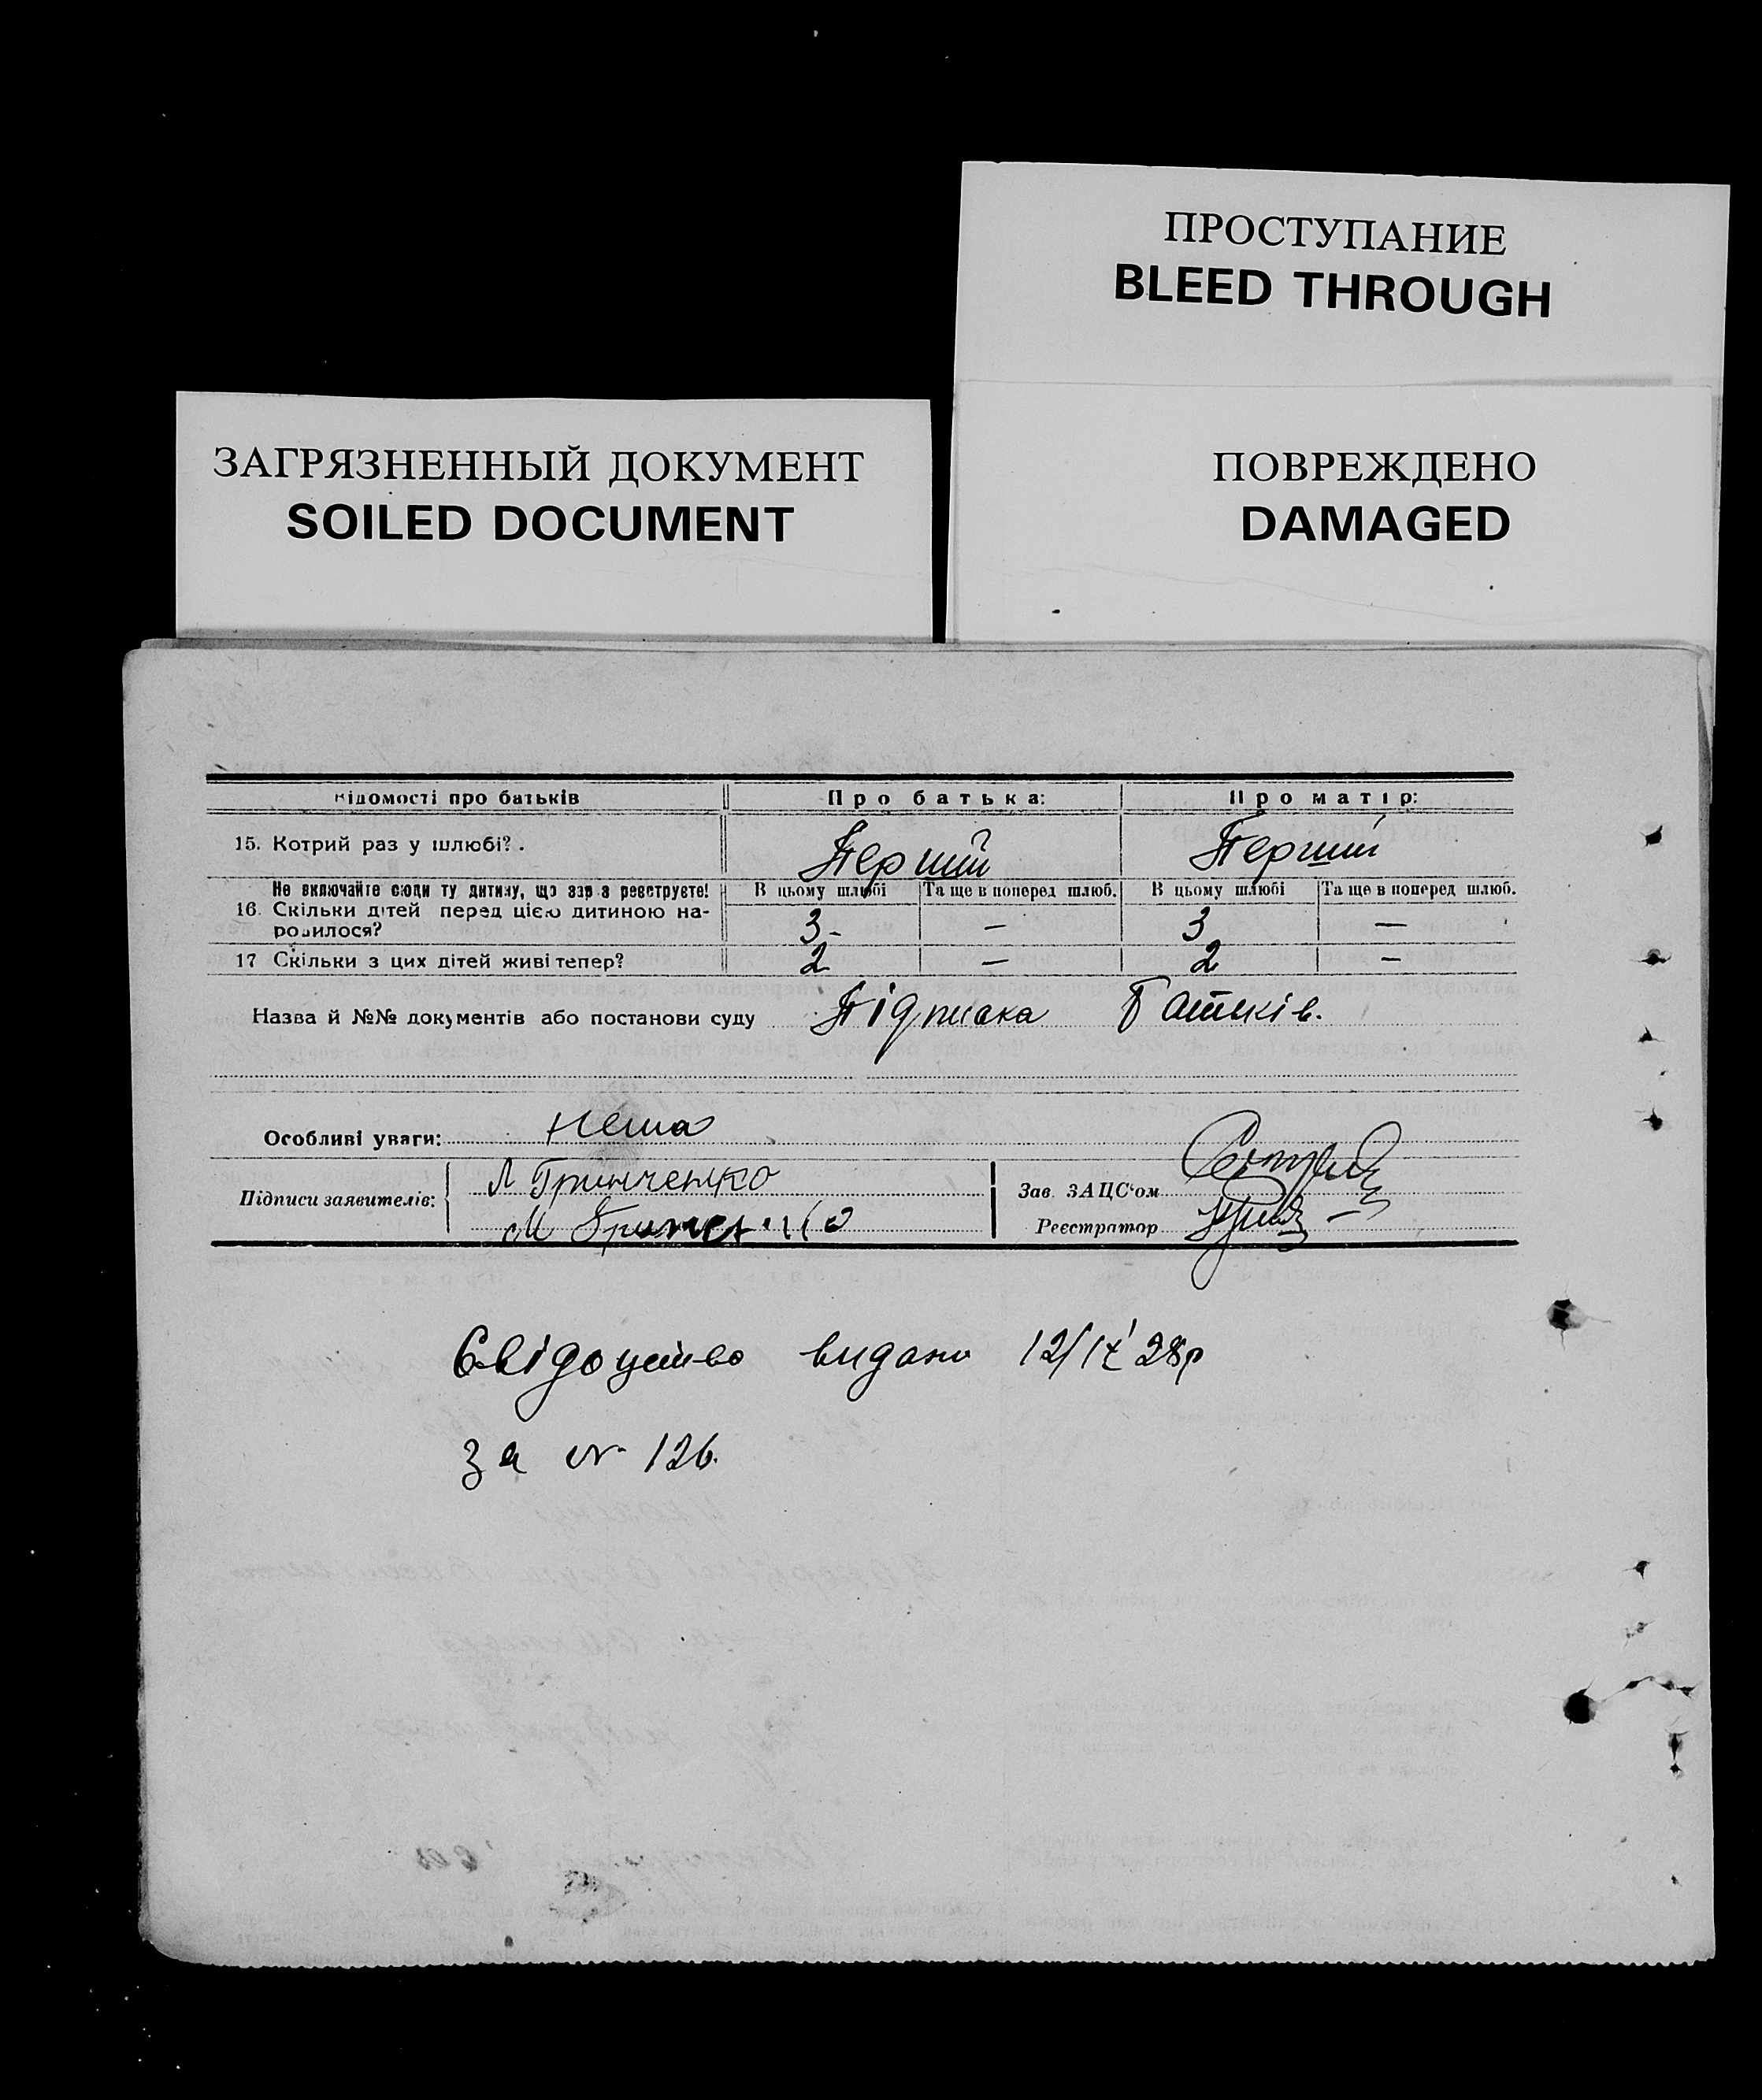 ПРОСТУПАНИЕ
BLEED THROUGH
ЗАГРЯЗНЕННЫЙ ДОКУМЕНТ
SOILED DOCUMENT
ПОВРЕЖДЕНО
DAMAGED
відомості про батьків Про батька: Про матір:
15. Котрий раз у шлюбі? . Перший Перший
Не включайте сюди ту дитину, що зар з реєструєте! В цьому шлюбі Та ще в поперед шлюб. В цьому шлюбі Та ще в поперед шлюб.
16. Скільки дітей перед цією дитиною на-
родилося? 3- — 3 —
17 Скільки з цих дітей живі тепер? 2 — 2 —
Назва й №№ документів або постанови суду Підписка Батьків.
Особливі уваги: нема
Підписи заявителів: Л Гринченко Зав. ЗАЦС'ом
М Гринченко Реєстратор
Свідоцтво видано 12/IX 28р
за № 126.